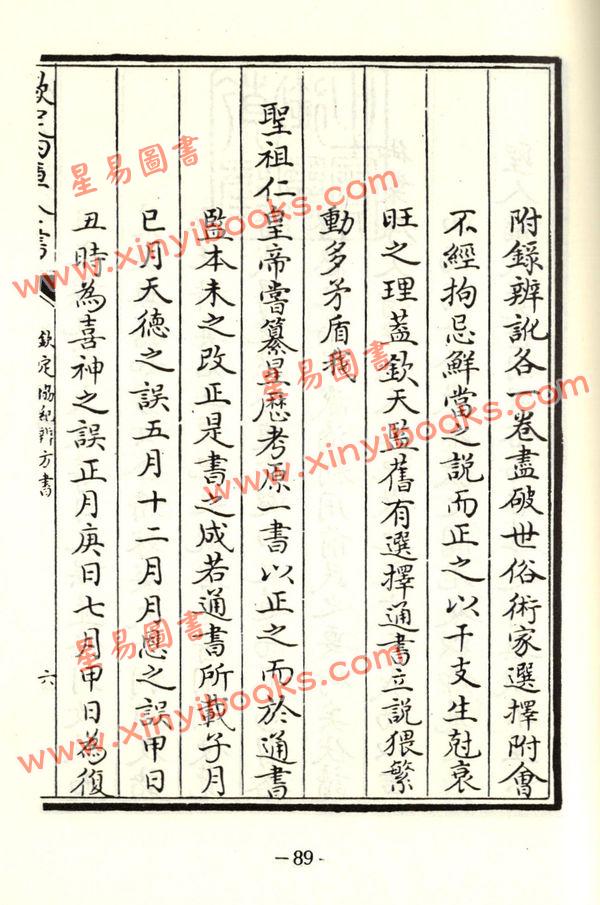 附錄辨訛各一卷盡破世俗術家選擇附會
不經拘忌鮮當之說而正之以干支生尅衰
旺之理蓋欽天監舊有選擇通書立說猥繁
動多矛盾我
聖祖仁皇帝嘗纂星歷考原一書以正之而於通書
監本未之改正是書之成若通書所載子月
巳月天德之誤五月十二月月恩之誤甲日
丑時為喜神之誤正月庚日七月甲日為復
欽定四庫全書
欽定協紀辨方書
六
-89-
星易圖書
www.xinyibooks.com
星易圖書
www.xinyibooks.com
星易圖書
www.xinyibooks.com